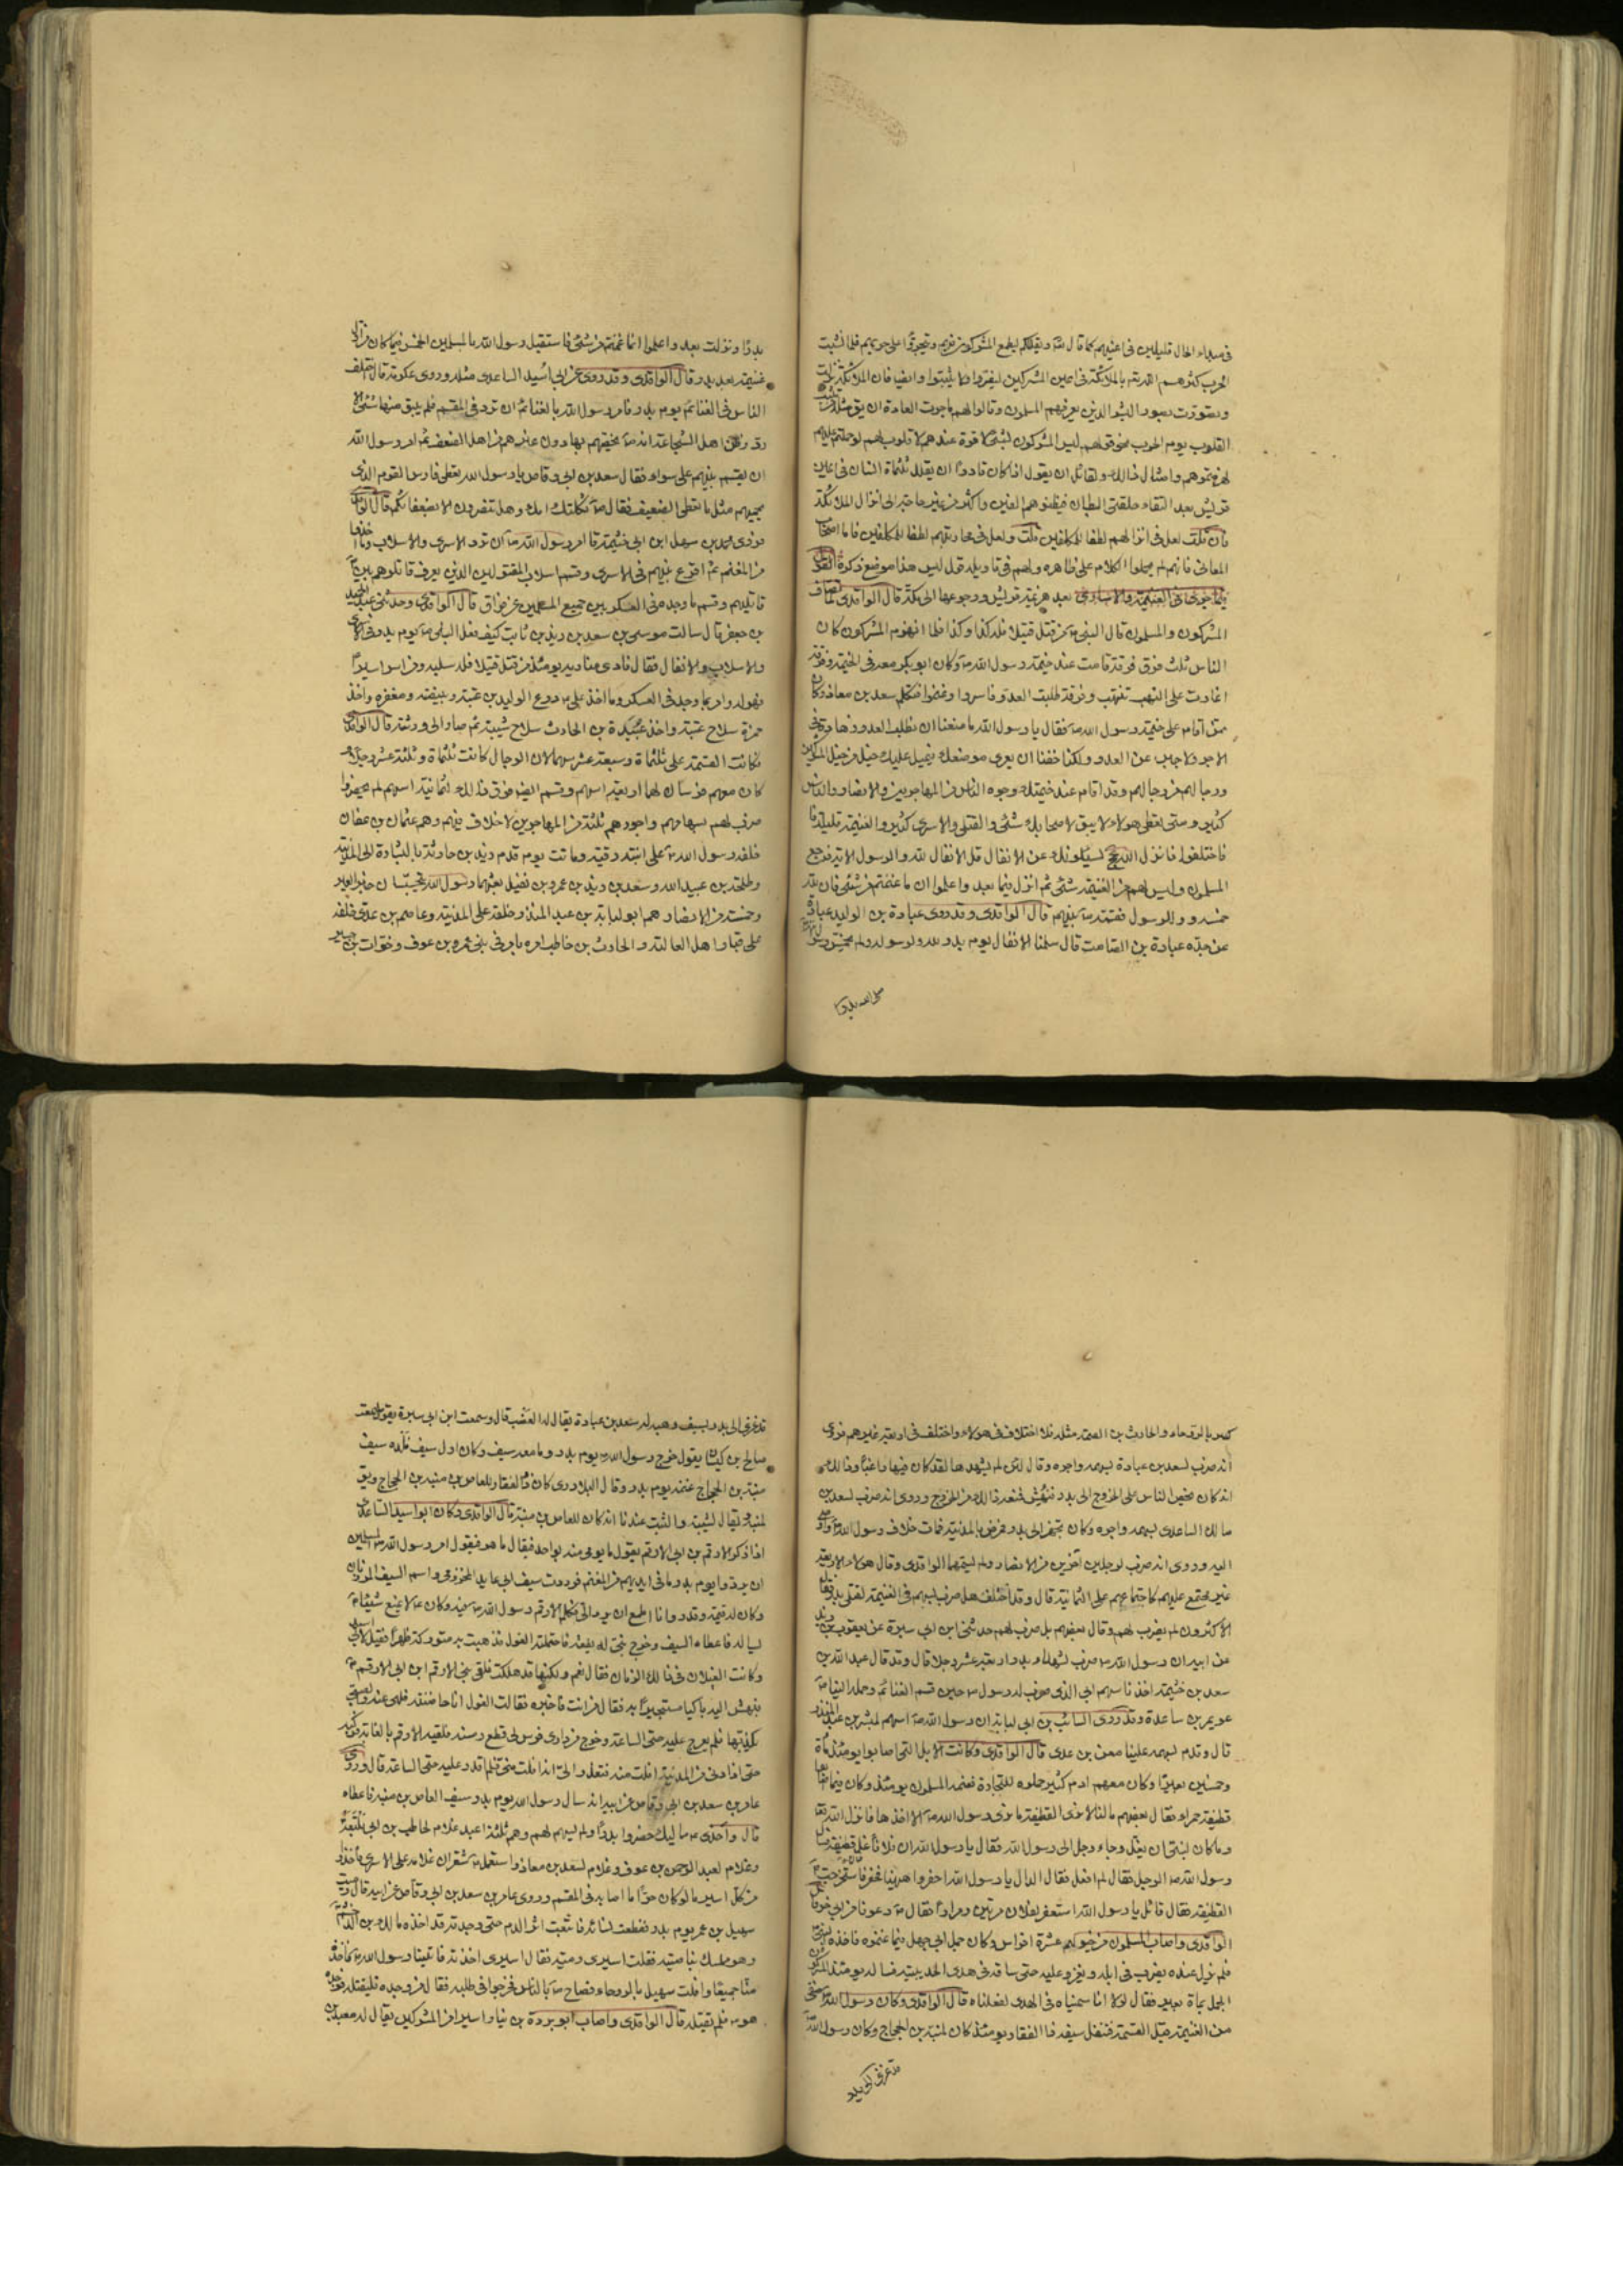 في مبداء الحال قليلين في اعينهم كما قال تعالى ويقللكم ليطمع المشركون فيهم ويتجروا على حربهم فلما نشبت
الحرب كثرهم الله تعالى بالملائكة في اعين المشركين ليفروا ولا يثبتوا وايضا فان الملائكة نزلت
وتصورت بصور البشر الذين يعرفهم المسلمون وقالوا لهم ما جرت العادة ان يق مثله من تثبيت
القلوب يوم الحرب نحو قولهم ليس المشركون بشئ لا قوة عندهم لا قلوب لهم لو حملتم عليهم
لهزمتموهم وامثال ذلك ولقائل ان يقول اذا كان قادرا ان يقلل ثلثماة انسان في اعين
قريش بعد التقاء حلقتي البطان فيظنوهم الفين واكثر من غير حاجة الى انزال الملائكة
فان قلت لعل في انزالهم لطفا للمكلفين قلت ولعل في محاربتهم لطفا للمكلفين فاما اصحاب
المعاني فانهم لم يحملوا الكلام على ظاهره ولهم في تاويله قول ليس هذا موضع ذكره القول
فيما جرى في الغنيمة والاسارى بعد هزيمة قريش ورجوعها الى مكة قال الواقدي لما تصاف
المشركون والمسلمون قال النبي ص من قتل قتيلا فله كذا وكذا فلما انهزم المشركون كان
الناس ثلث فرق فرقة قامت عند خيمة رسول الله ص وكان ابو بكر معه في الخيمة وفرقة
اغارت على النهب تنهب وفرقة طلبت العدو فاسروا وغنموا فتكلم سعد بن معاذ وكان
ممن اقام على خيمة رسول الله ص فقال يا رسول الله ما منعنا ان نطلب العدو زهادة في
الاجر ولا جبن عن العدو ولكنا خفنا ان يعرى موضعك فيميل عليك خيل من خيل المشركين
ورجال من رجالهم وقد اقام عند خيمتك وجوه الناس من المهاجرين والانصار والناس
كثير ومتى تعطي هولاء لا يبق لاصحابك شئ والقتلى والاسرى كثير والغنيمة قليلة
فاختلفوا فانزل الله تع يسئلونك عن الانفال قل الانفال لله والرسول الاية فرجع
المسلمون وليس لهم من الغنيمة شئ ثم انزل فيما بعد واعلموا ان ما غنمتم من شئ فان لله
خمسه وللرسول فقسمه ص بينهم قال الواقدي وقد روى عبادة بن الوليد بن عبادة
عن جده عبادة بن الصامت قال سلمنا الانفال يوم بدر لله ولرسوله ولم يخمس رسول الله
صلى الله بدرا
بدرا ونزلت بعد واعلموا انما غنمتم من شئ فاستقبل رسول الله بالمسلمين الخمس فيما كان من اول
غنيمة بعد بدر قال الواقدي وقد روى عن ابي اسيد الساعدي مثله وروى عكرمة قال اختلف
الناس في الغنائم يوم بدر فامر رسول الله بالغنائم ان ترد في المقسم فلم يبق منها شئ الا
رد وظن اهل الشجاعة انه ص يخصهم بها دون غيرهم من اهل الضعف ثم امر رسول الله
ان يقسم بينهم على سواء فقال سعد بن ابي وقاص يا رسول الله تعطى فارس القوم الذي
يحميهم مثل ما تعطى الضعيف فقال ص ثكلتك امك وهل تنصرون الا بضعفائكم قال الواقدي
فروى محمد بن سهل ابن ابي خيثمة قال امر رسول الله ص ان ترد الاسرى والاسلاب وما اخذوا
من المغنم ثم اقرع بينهم في الاسرى وقسم اسلاب المقتولين الذين يعرف قاتلوهم بين
قاتليهم وقسم ما وجد في العسكر بين جميع المسلمين عن فواق قال الواقدي وحدثني عبد الحميد
بن جعفر قال سالت موسى بن سعد بن زيد بن ثابت كيف فعل النبي ص يوم بدر في الاسرى
والاسلاب والانفال فقال نادى مناديه يومئذ من قتل قتيلا فله سلبه ومن اسر اسيرا
فهو له وامر بما وجد في العسكر وما اخذ علي ع درع الوليد بن عتبة وبيضته ومغفره واخذ
حمزة سلاح عتبة واخذ عبيدة بن الحارث سلاح شيبة ثم صار الى ورثته قال الواقدي
فكانت القسمة على ثلثماة وسبعة عشر سهما لان الرجال كانت ثلثماة وثلثة عشر رجلا و
كان معهم فرسان لهما اربعة اسهم وقسم ايضا فوق ذلك لثمانية اسهم لم يحضروا
ضرب لهم بسهامهم واجورهم ثلثة من المهاجرين لا خلاف فيهم وهم عثمان بن عفان
خلفه رسول الله ص على ابنته رقية وماتت يوم قدم زيد بن حارثة بالبشارة الى المدينة
وطلحة بن عبيد الله وسعد بن زيد بن عمرو بن نفيل بعثهما رسول الله يتجسسان خبر العير
وخمسة من الانصار هم ابو لبابة بن عبد المنذر خلفه على المدينة وعاصم بن عدي خلفه
على قبا واهل العالية والحارث بن حاطب امره بامر في بني عمرو بن عوف وخوات بن جبير
كسر بالروحاء والحارث بن الصمة مثله فلا اختلاف في هولاء واختلف في اربعة غيرهم فروى
انه ضرب لسعد بن عبادة بسهمه واجره وقال لئن لم يشهدها لقد كان فيها راغبا وذلك
انه كان يحض الناس على الخروج الى بدر فنهش فمنعه ذلك من الخروج وروى انه ضرب لسعد بن
مالك الساعدي بسهمه واجره وكان تجهز الى بدر فمرض بالمدينة فمات خلاف رسول الله واوصى
اليه وروى انه ضرب لرجلين آخرين من الانصار ولم يسمهما الواقدي وقال هولاء الاربعة
غير مجتمع عليهم كاجتماعهم على الثمانية قال وقد اختلف هل ضرب بسهم في الغنيمة لقتلى بدر فقال
الاكثرون لم يضرب لهم وقال بعضهم بل ضرب لهم حدثني ابن ابي سبرة عن يعقوب بن زيد
عن ابيه ان رسول الله ص ضرب لشهداء بدر اربعة عشر رجلا قال وقد قال عبد الله بن
سعد بن خيثمة اخذنا سهم ابي الذي ضرب له رسول ص حين قسم الغنائم وحمله الينا
عويمر بن ساعدة وقد روى السائب بن ابي لبابة ان رسول الله ص اسهم لمبشر بن عبد المنذر
قال وقدم بسهمه علينا معن بن عدي قال الواقدي وكانت الابل التي اصابوا يومئذ ماة
وخمسين بعيرا وكان معهم ادم كثير حملوه للتجارة فغنمه المسلمون يومئذ وكان فيما اصابوا
قطيفة حمراء فقال بعضهم مالنا لا نرى القطيفة ما نرى رسول الله ص الا اخذها فانزل الله تع
وما كان لنبي ان يغل وجاء رجل الى رسول الله فقال يا رسول الله ان فلانا غل قطيفة فسال
رسول الله ص الرجل فقال لم افعل فقال الدال يا رسول الله احفروا ههنا فحفر فاستخرجت
القطيفة فقال قائل يا رسول الله استغفر لفلان مرتين ومرارا فقال ص دعونا من ابي خر قال
الواقدي واصاب المسلمون من خيولهم عشرة افراس وكان جمل ابي جهل فيما غنموه فاخذه النبي
فلم يزل عنده يضرب في ابله ويغزو عليه حتى ساقه في هدى الحديبية فساله يومئذ المشركون
الجمل بماة بعير فقال لولا انا سميناه في الهدى لفعلنا قال الواقدي وكان رسول الله ص صفى
من الغنيمة قبل القسمة فتنفل سيفه ذا الفقار يومئذ كان لمنبه بن الحجاج وكان رسول الله
قد غزى الى بدر
قد غزى الى بدر بسيف وهبه له سعد بن عبادة يقال له العضب قال وسمعت ابن ابي سبرة يقول سمعت
صالح بن كيسان يقول خرج رسول الله يوم بدر وما معه سيف وكان اول سيف قلده سيف
منبه بن الحجاج غنمه يوم بدر وقال البلاذري كان ذو الفقار للعاص بن منبه بن الحجاج ويق
لمنبه ويقال لشيبة والثبت عندنا انه كان للعاص بن منبه قال الواقدي وكان ابو اسيد الساعدي
اذا ذكر الارقم بن ابي الارقم يقول ما يومي منه بواحد فيقال ما هو فيقول امر رسول الله ص المسلمين
ان يردوا يوم بدر ما في ايديهم من المغنم فرددت سيف ابي عايذ المخزومي واسم السيف المرزبان
وكان له قيمة وقدر وانا اطمع ان يرد الي فكلم الارقم رسول الله ص فيه وكان ع لا يمنع شيئا
يساله فاعطاه السيف وخرج بني له يفعة فاحتملته الغول فذهبت به متوركة ظهرا فقيل لابي اسيد
وكانت الغيلان في ذلك الزمان فقال نعم ولكنها قد هلكت فلقي بني الارقم ابن ابي الارقم
فبهش اليه باكيا مستجيرا به فقال من انت فاخبره فقالت الغول انا حاضنته فلهى عنه والصبي
يكذبها فلم يعرج عليه حتى الساعة وخرج من داري فرس لي قطع رسنه فلقيه الارقم بالغابة فركبه
حتى اذا دنى من المدينة افلت منه فتعذر الي انه افلت مني فلم اقدر عليه حتى الساعة قال وروى
عامر بن سعد بن ابي وقاص عن ابيه انه سال رسول الله يوم بدر سيف العاص بن منبه فاعطاه
قال واحذى ص مماليك حضروا بدرا ولم يسهم لهم وهم ثلثة اعبد غلام لحاطب بن ابي بلتعة
وغلام لعبد الرحمن بن عوف وغلام لسعد بن معاذ واستعمل ص شقران غلامه على الاسرى فاخذوا
من كل اسير ما لو كان حرا ما اصابه في المقسم وروى عامر بن سعد بن ابي وقاص عن ابيه قال رميت
سهيل بن عمر يوم بدر فقطعت نسائه فاتبعت اثر الدم حتى وجدته قد اخذه مالك بن الدخشم
وهو ممسك بناصيته فقلت اسيري رميته فقال اسيري اخذته فاتينا رسول الله ص فاخذه
منا جميعا وافلت سهيل بالروحاء فصاح ص بالناس فخرجوا في طلبه فقال من وجده فليقتله فوجده
هو ص فلم يقتله قال الواقدي واصاب ابو بردة بن نيار اسيرا من المشركين يقال له معبد بن